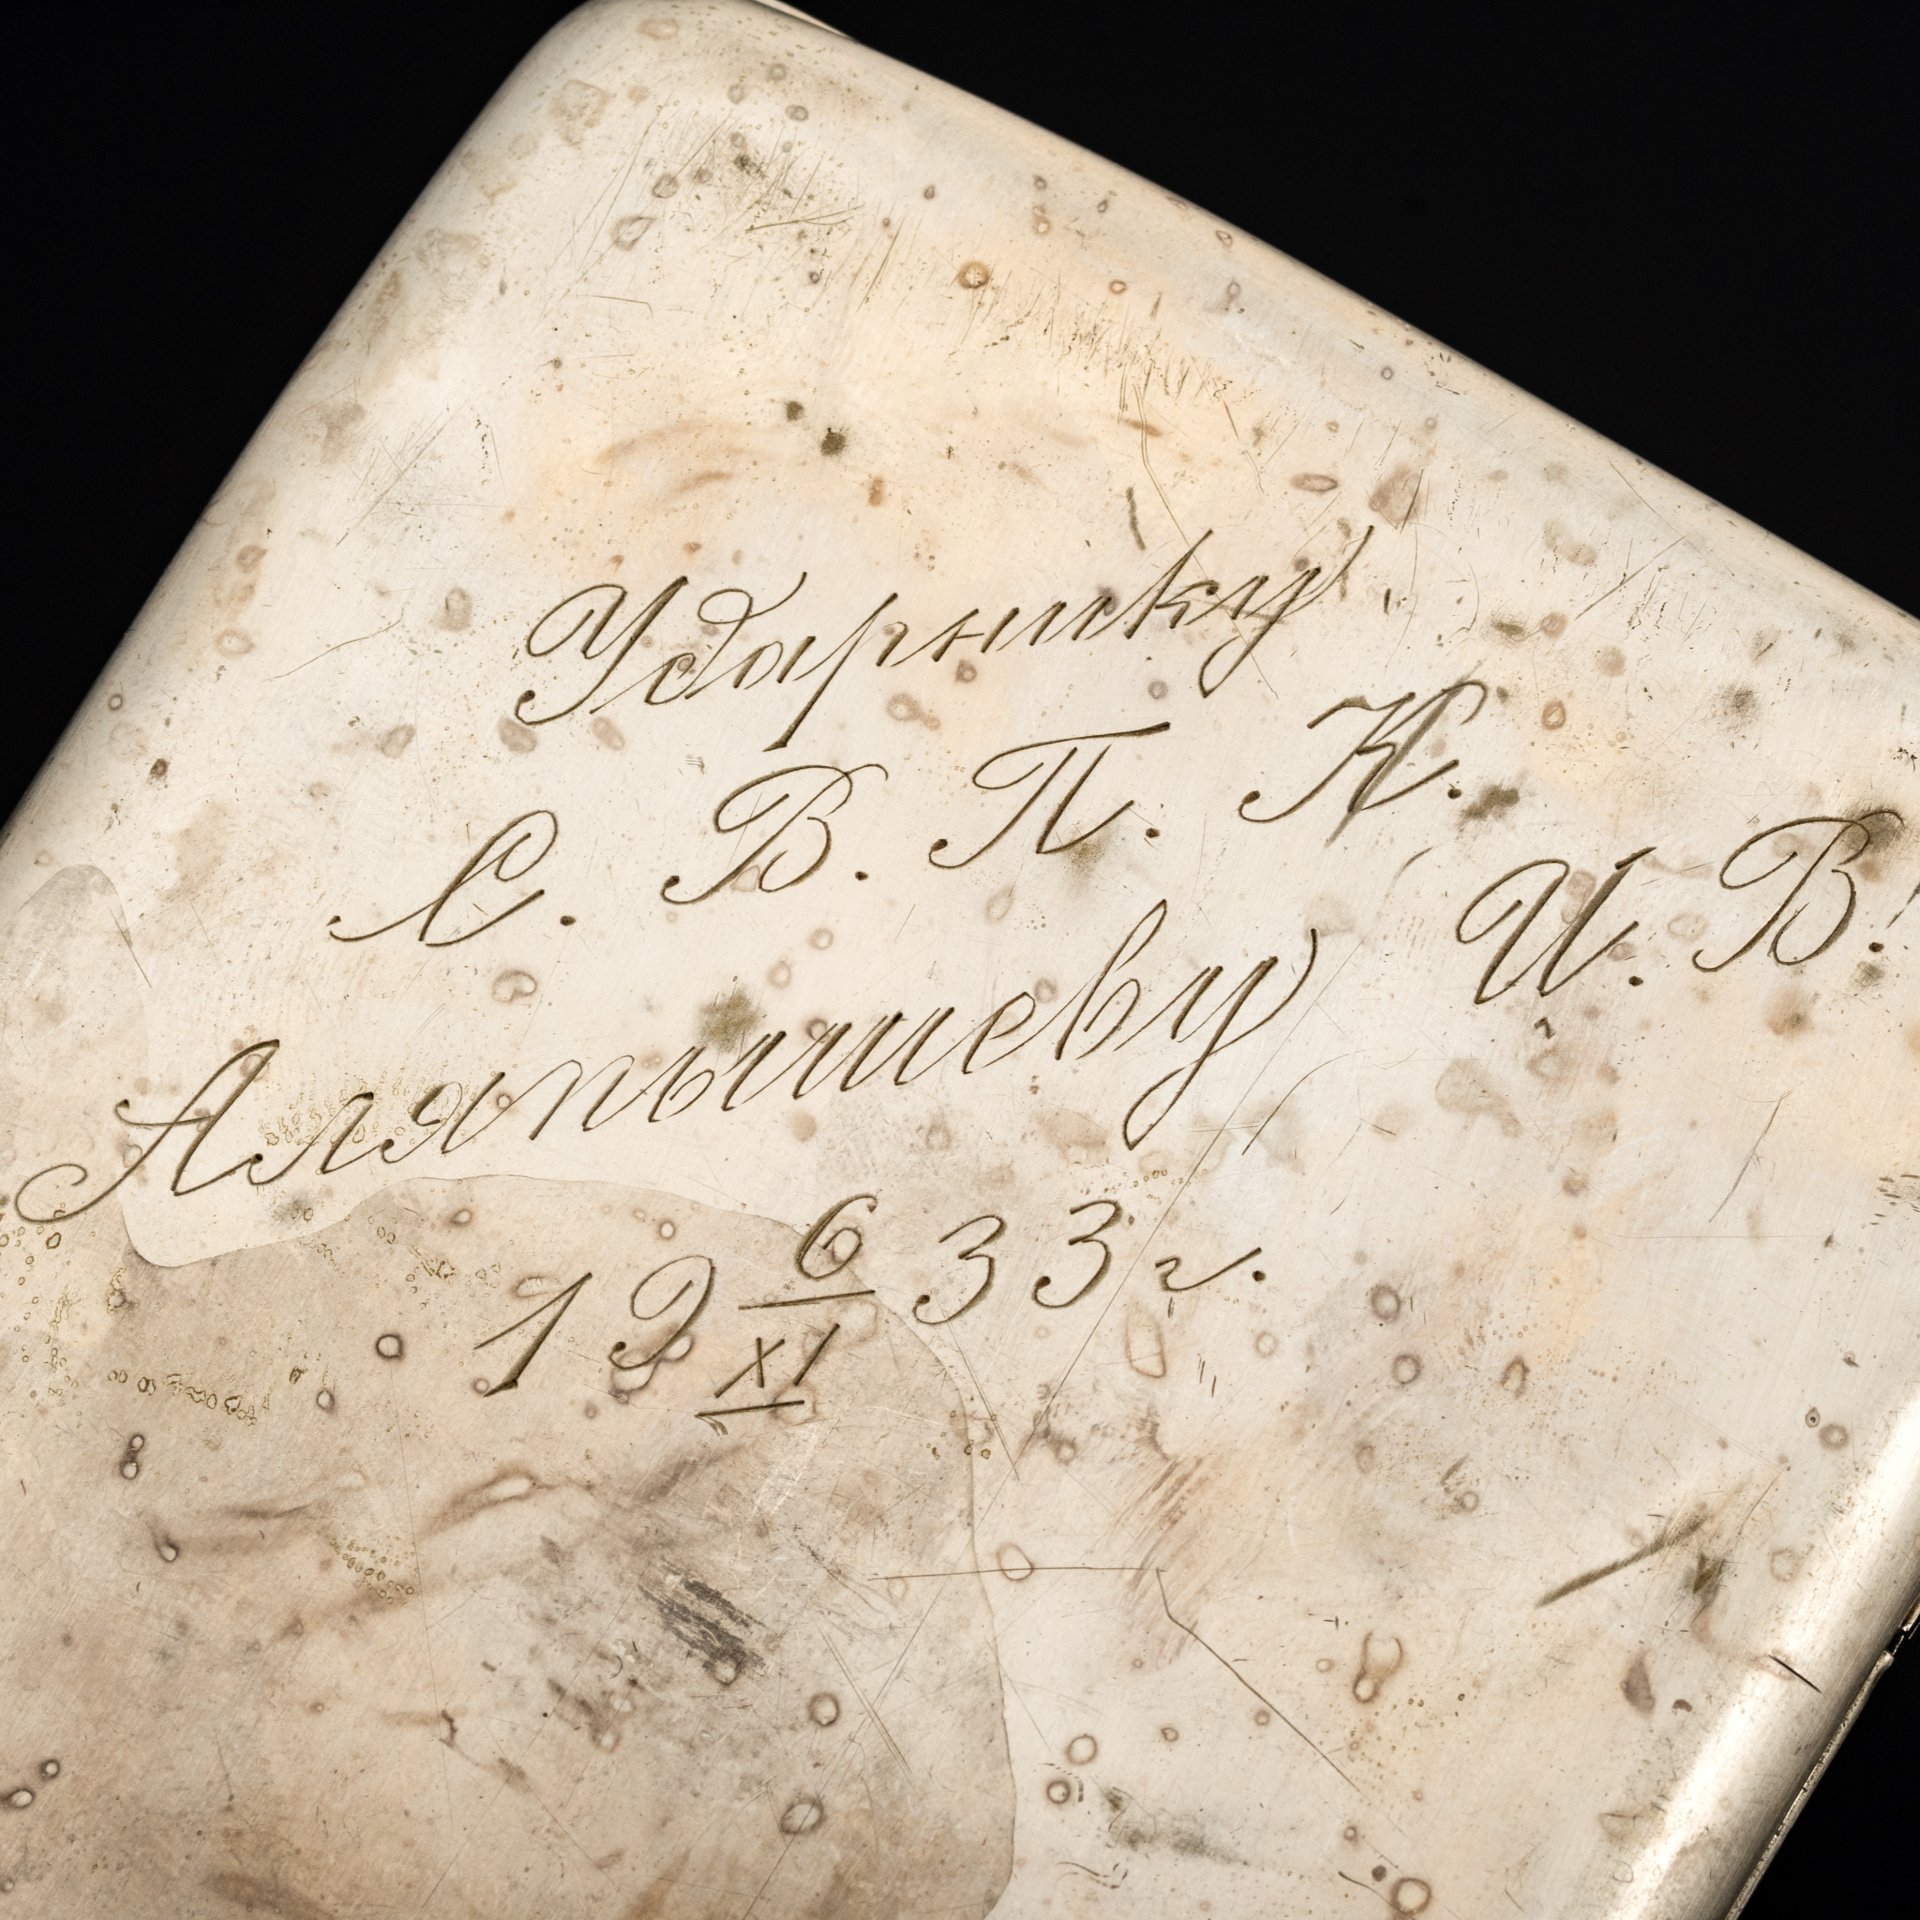 Ударнику
С. В. П. К.
Аляпышеву И. В.
19 6/XI 33 г.